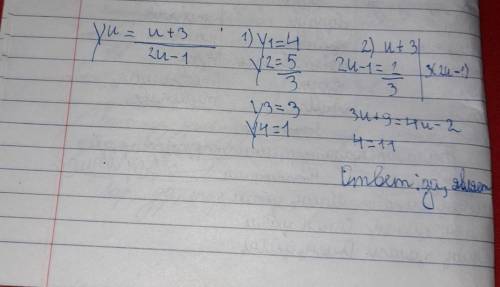 yn = n+3 / 2n-1
1) y1=4
y2=5/3
y3=3
y4=1
2) n+3 / 2n-1 = 2/3 | 3(2n-1)
3n+9=4n-2
4=11
Ответ: да,